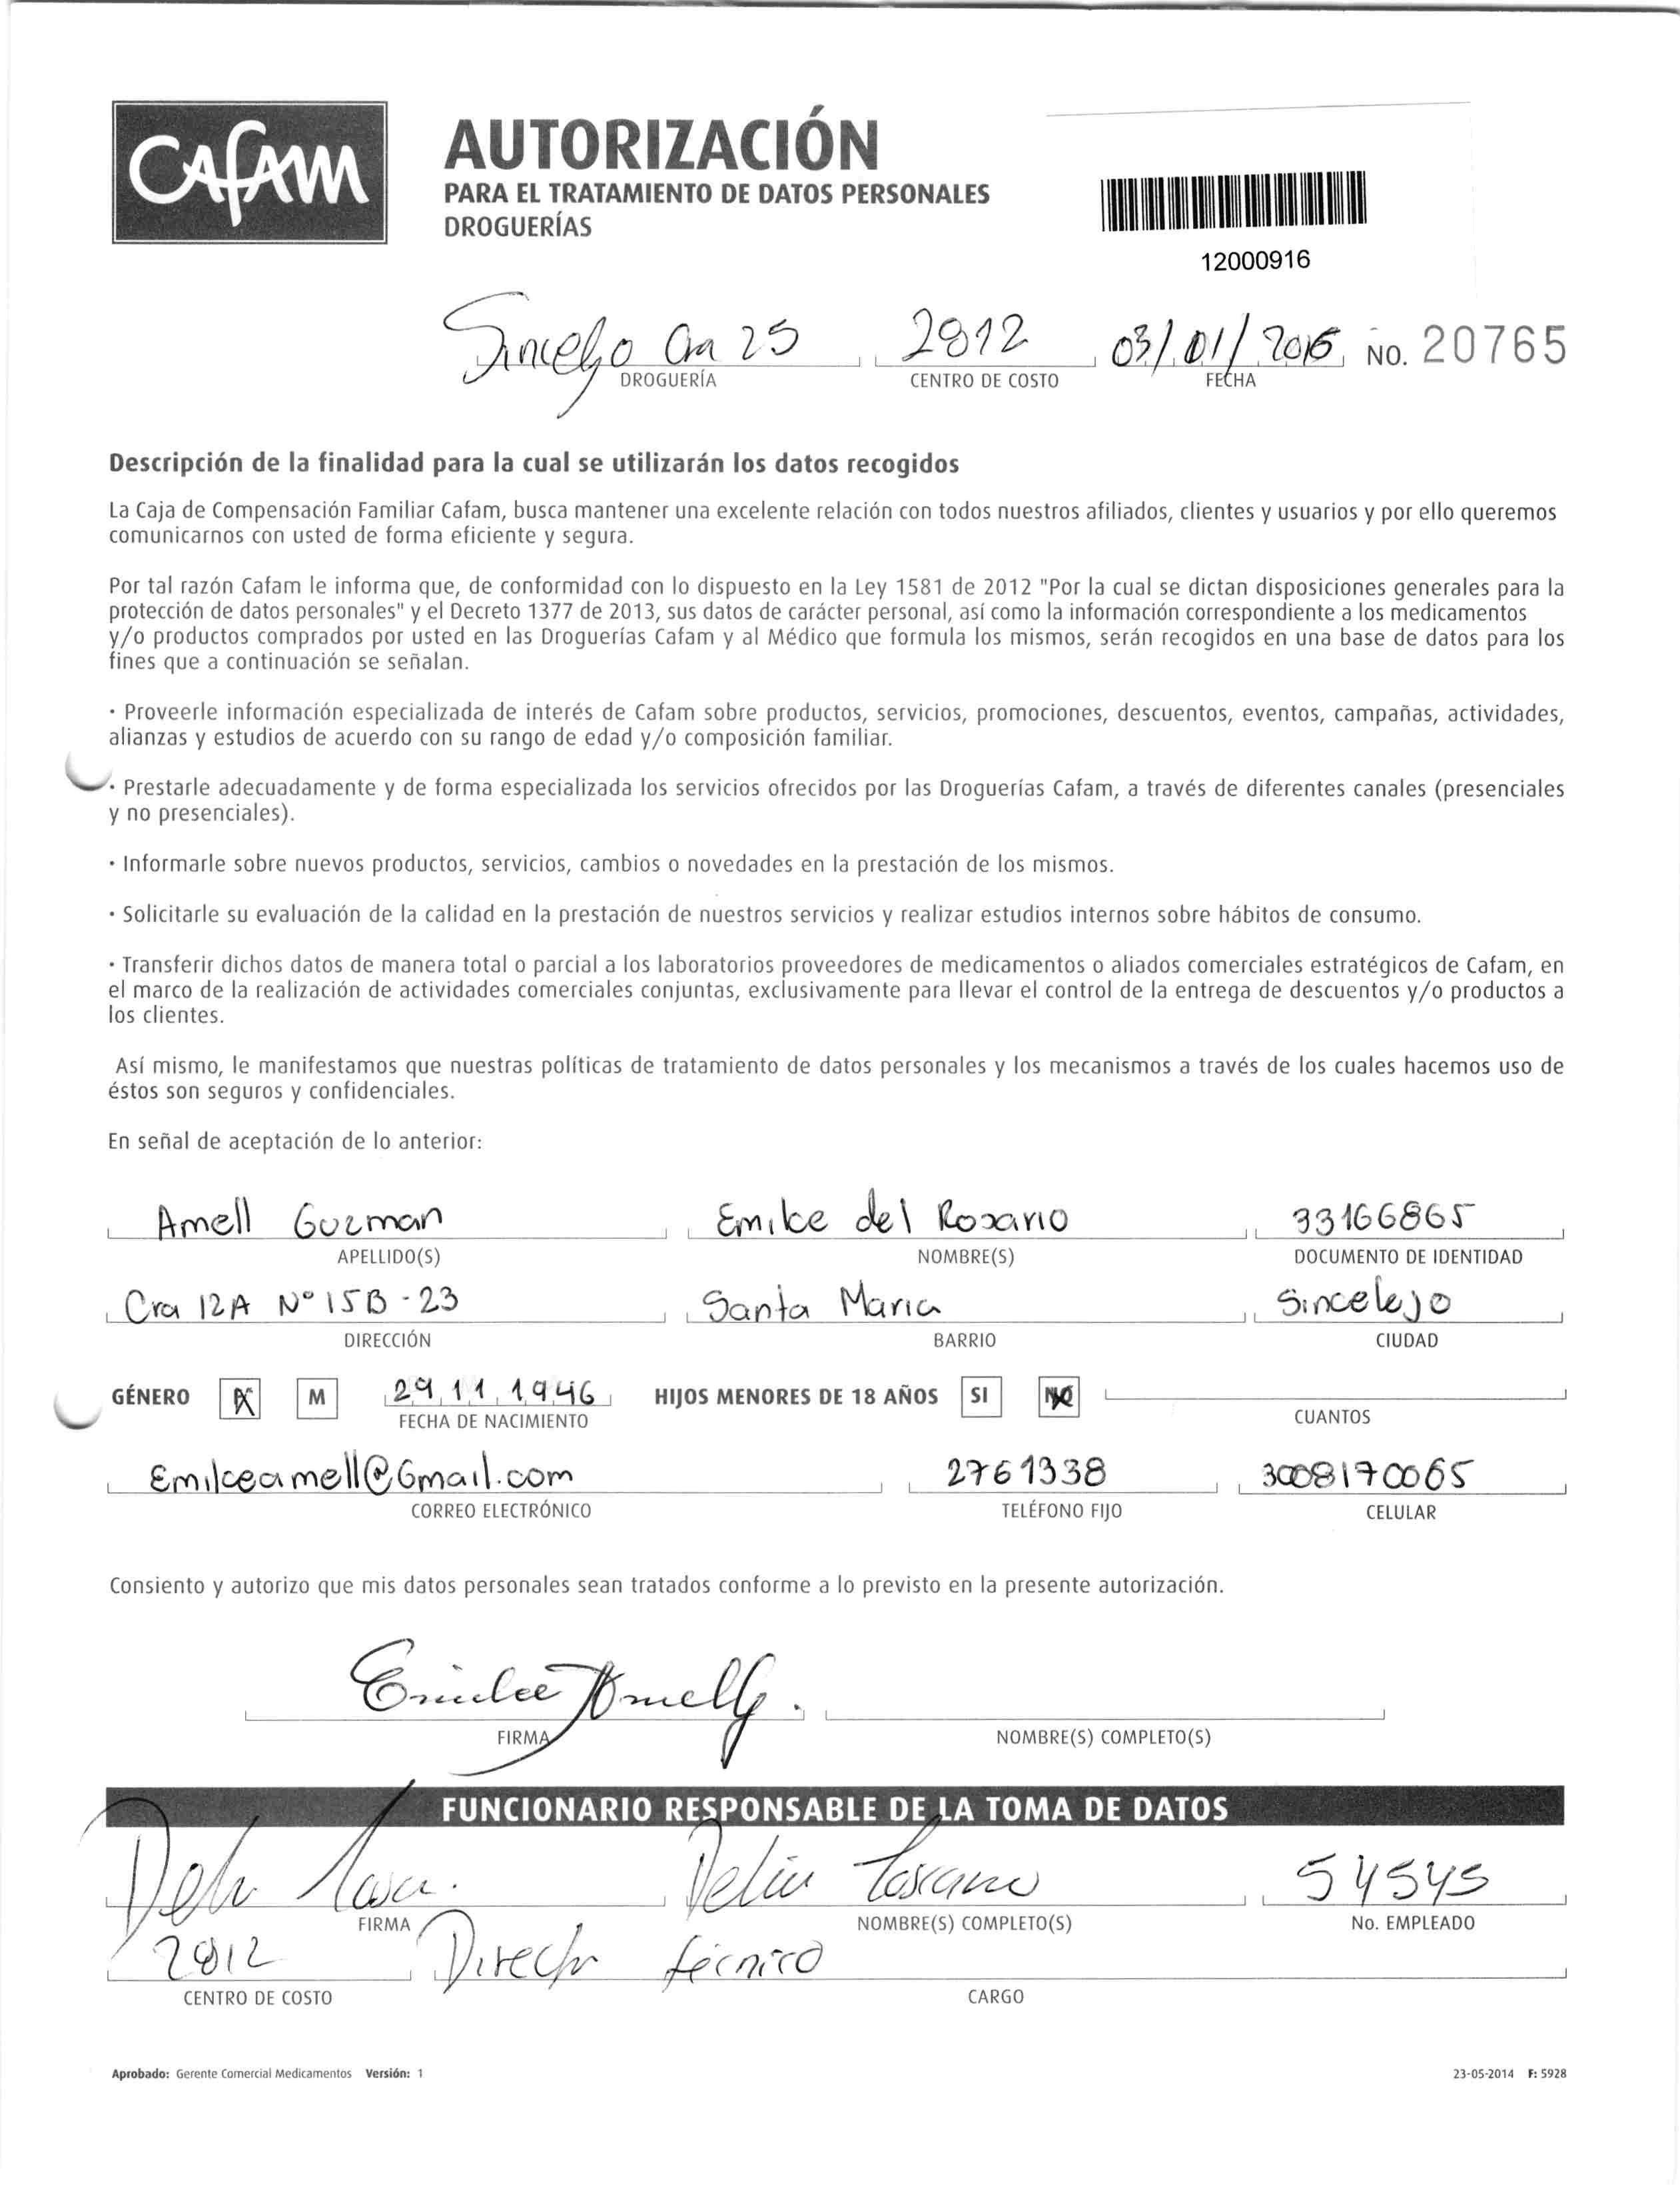 Cafam
AUTORIZACIÓN
PARA EL TRATAMIENTO DE DATOS PERSONALES
DROGUERÍAS
12000916
Sincelejo Cra 25 2812 03/01/2016 No. 20765
DROGUERÍA CENTRO DE COSTO FECHA
Descripción de la finalidad para la cual se utilizarán los datos recogidos
La Caja de Compensación Familiar Cafam, busca mantener una excelente relación con todos nuestros afiliados, clientes y usuarios y por ello queremos
comunicarnos con usted de forma eficiente y segura.
Por tal razón Cafam le informa que, de conformidad con lo dispuesto en la Ley 1581 de 2012 "Por la cual se dictan disposiciones generales para la
protección de datos personales" y el Decreto 1377 de 2013, sus datos de carácter personal, así como la información correspondiente a los medicamentos
y/o productos comprados por usted en las Droguerías Cafam y al Médico que formula los mismos, serán recogidos en una base de datos para los
fines que a continuación se señalan.
· Proveerle información especializada de interés de Cafam sobre productos, servicios, promociones, descuentos, eventos, campañas, actividades,
alianzas y estudios de acuerdo con su rango de edad y/o composición familiar.
· Prestarle adecuadamente y de forma especializada los servicios ofrecidos por las Droguerías Cafam, a través de diferentes canales (presenciales
y no presenciales).
· Informarle sobre nuevos productos, servicios, cambios o novedades en la prestación de los mismos.
· Solicitarle su evaluación de la calidad en la prestación de nuestros servicios y realizar estudios internos sobre hábitos de consumo.
· Transferir dichos datos de manera total o parcial a los laboratorios proveedores de medicamentos o aliados comerciales estratégicos de Cafam, en
el marco de la realización de actividades comerciales conjuntas, exclusivamente para llevar el control de la entrega de descuentos y/o productos a
los clientes.
Así mismo, le manifestamos que nuestras políticas de tratamiento de datos personales y los mecanismos a través de los cuales hacemos uso de
éstos son seguros y confidenciales.
En señal de aceptación de lo anterior:
Amell Guzman Emilce del Rosario 33166865
APELLIDO(S) NOMBRE(S) DOCUMENTO DE IDENTIDAD
Cra 12A N° 15B - 23 Santa Maria Sincelejo
DIRECCIÓN BARRIO CIUDAD
GÉNERO F M 29 11 1946 HIJOS MENORES DE 18 AÑOS SI NO
FECHA DE NACIMIENTO CUANTOS
Emilceamell@Gmail.com 2761338 3008170065
CORREO ELECTRÓNICO TELÉFONO FIJO CELULAR
Consiento y autorizo que mis datos personales sean tratados conforme a lo previsto en la presente autorización.
Emilce Amell
FIRMA NOMBRE(S) COMPLETO(S)
FUNCIONARIO RESPONSABLE DE LA TOMA DE DATOS
Toscano 54545
FIRMA NOMBRE(S) COMPLETO(S) No. EMPLEADO
2812 Director técnico
CENTRO DE COSTO CARGO
Aprobado: Gerente Comercial Medicamentos Versión: 1 23-05-2014 F: 5928